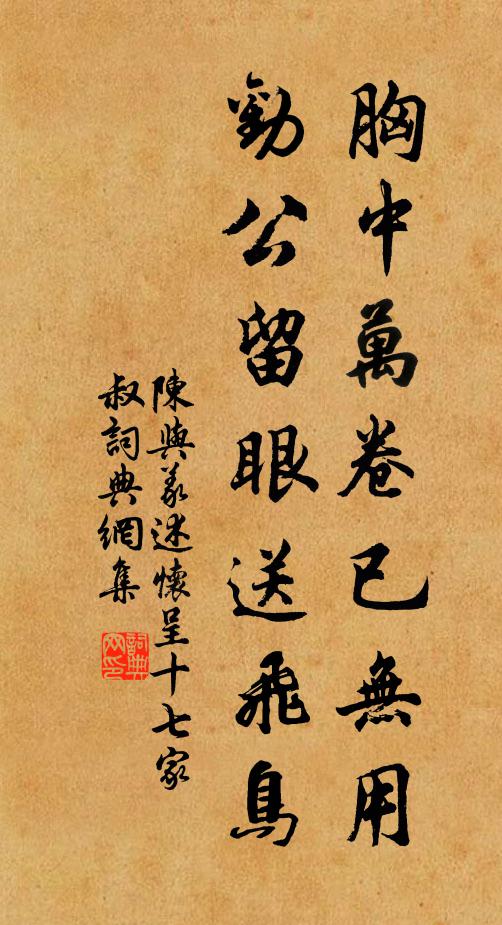 胸中萬卷已無用
勸公留眼送飛鳥
陳與義述懷呈十七家
叔詞典網集
詞典
网印